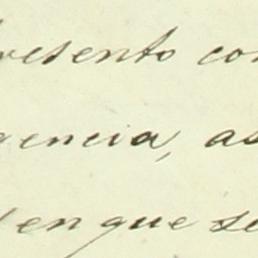 resento con
gencia, as
en que se